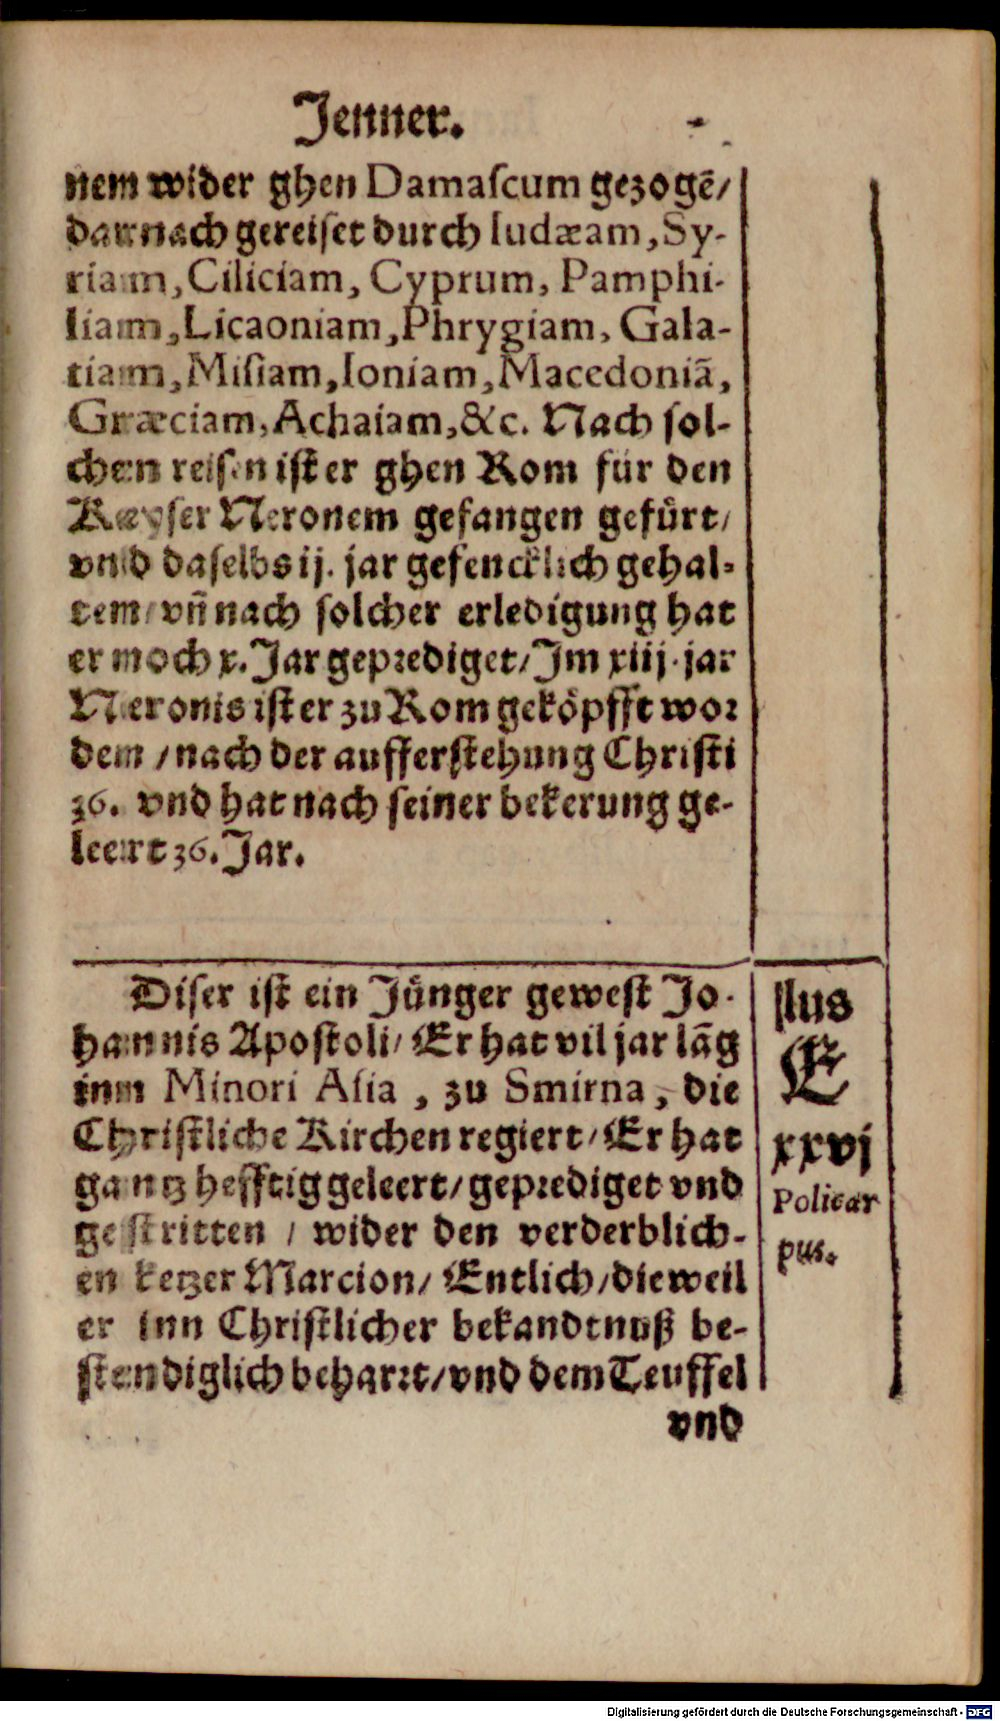 Jenner.
nem wider ghen Damaſcum gezogẽ/
darnach gereiſet durch Iudæam, Sy-
riam, Ciliciam, Cyprum, Pamphi-
liam, Licaoniam, Phrygiam, Gala-
tiam, Miſiam, Ioniam, Macedoniã,
Græciam, Achaiam, &c. Nach ſol-
chen reiſen iſt er ghen Rom für den
Keyſer Neronem gefangen gefürt/
vnd daſelbs ij. jar gefencklich gehal-
ten/ vñ nach ſolcher erledigung hat
er noch x. Jar geprediget/ Im xiij. jar
Neronis iſt er zu Rom geköpfft wor
den / nach der aufferſtehung Chriſti
36. vnd hat nach ſeiner bekerung ge-
leert 36. Jar.
Diſer iſt ein Jünger geweſt Jo-
hannis Apoſtoli/ Er hat vil jar lãg
inn Minori Aſia, zu Smirna, die
Chriſtliche Kirchen regiert/ Er hat
gantz hefftig geleert/ geprediget vnd
geſtritten / wider den verderblich-
en ketzer Marcion/ Entlich/ dieweil
er inn Chriſtlicher bekandtnuß be-
ſtendiglich beharrt/ vnd dem Teuffel
vnd
ſlus
E
xxvj
Policar
pus.
Digitalisierung gefördert durch die Deutsche Forschungsgemeinschaft - DFG